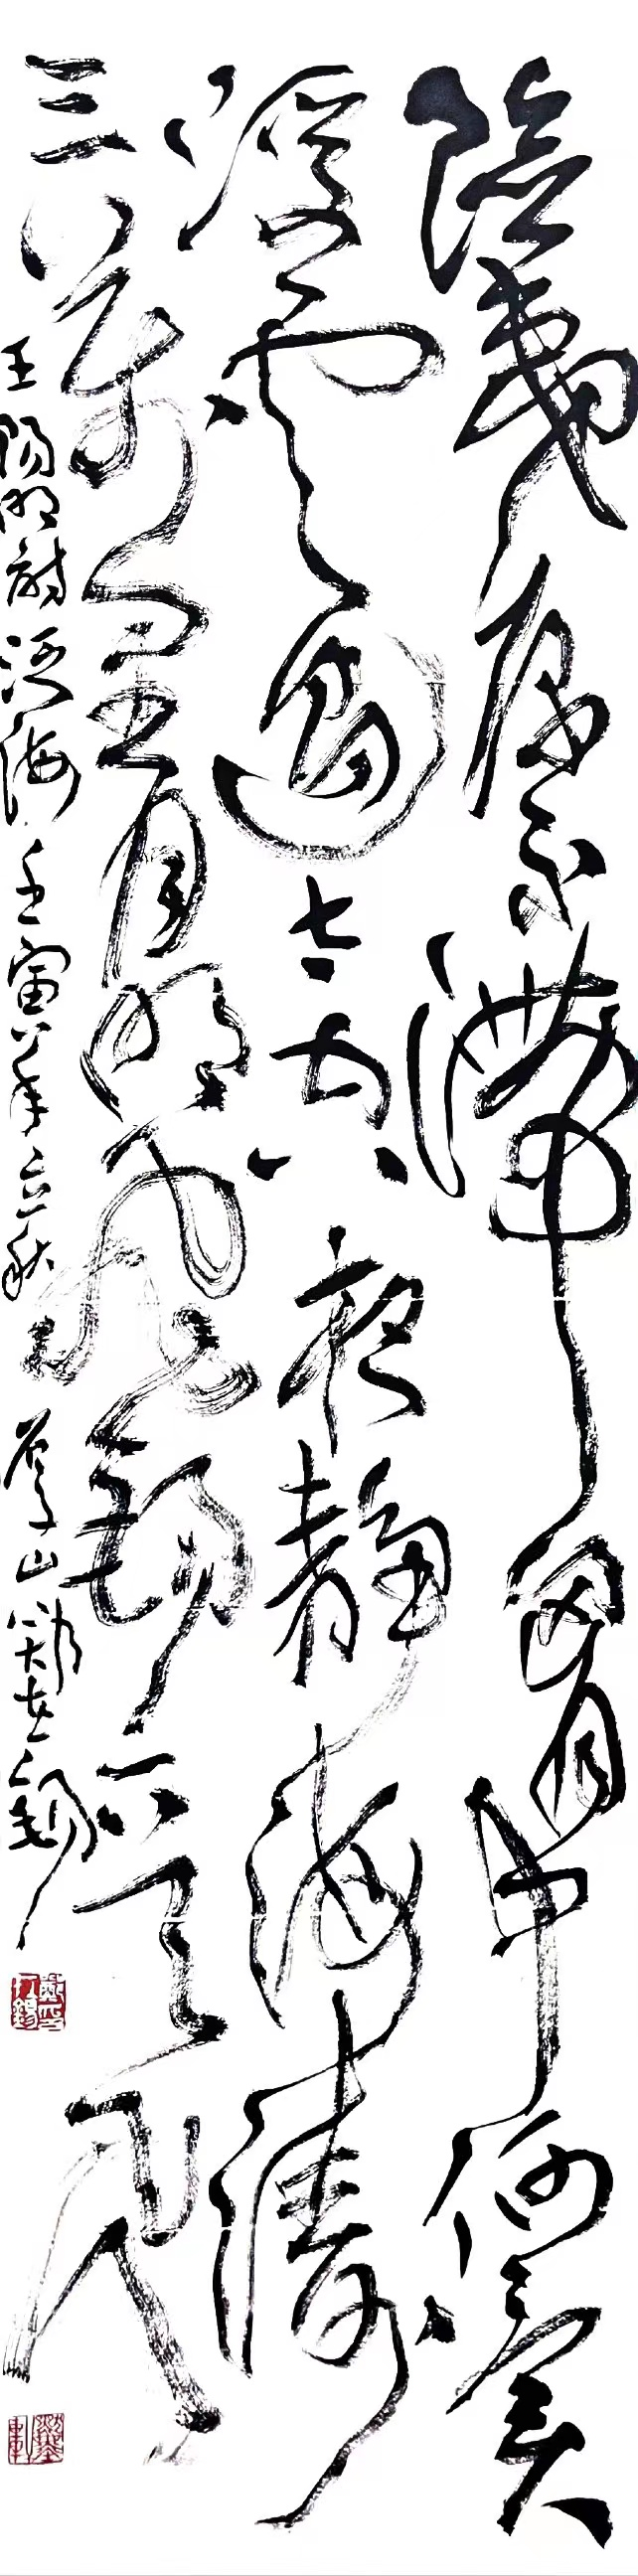 險夷原不滯胸中何異
浮雲過太空夜靜海濤
三萬里月明飛錫下天風
王陽明詩泛海 壬寅年立秋 鳳山